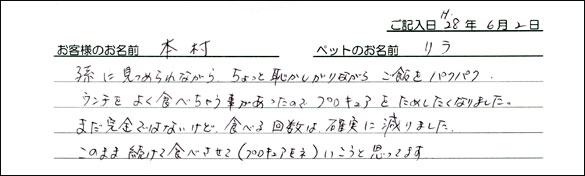 ご記入日 H.28年 6月 2日
お客様のお名前 本村 ペットのお名前 リラ
孫に見つめられながら ちょっと恥かしがりながら ご飯をパクパク.
ウンチを よく食べちゃう事があったので プロキュアを ためしたくなりました。
まだ完全ではないけど、食べる回数は、確実に減りました.
このまま続けて食べさせて(プロキュアモネ)いこうと思ってます